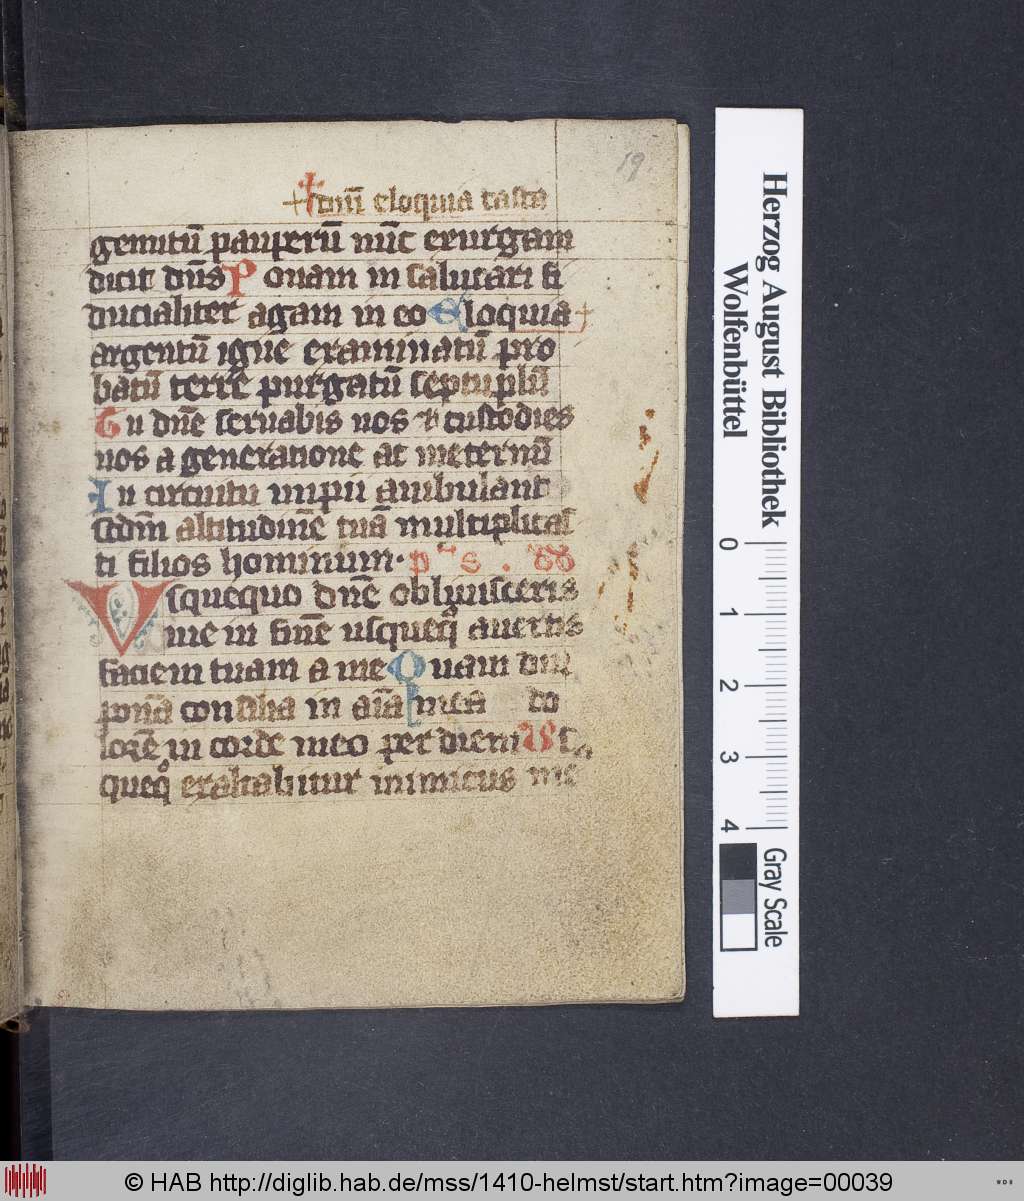 19.
dnı̄ eloquia casta
gemitū pauperū nūc exurgam
dicit dn̄s Ponam in salutari fi
ducialiter agam in eo Eloquia
argentū igne examinatū pro
batū terre purgatū septuplū
Tu dn̄e seruabis nos & custodies
nos a generatione at ineternū
In circuitu impii ambulant
scdm̄ altitudinē tuā multiplicas
ti filios hominum. ps. dd
Usquequo dn̄e obliuisceris
me in finē usqueq̄ auertis
faciem tuam a me Quam diu
ponā consilia in aı̄a mea do
lorē in corde meo per diem Us
queq° exaltabitur inimicus me
Herzog August Bibliothek
Wolfenbüttel
0 1 2 3 4
Gray Scale
© HAB http://diglib.hab.de/mss/1410-helmst/start.htm?image=00039